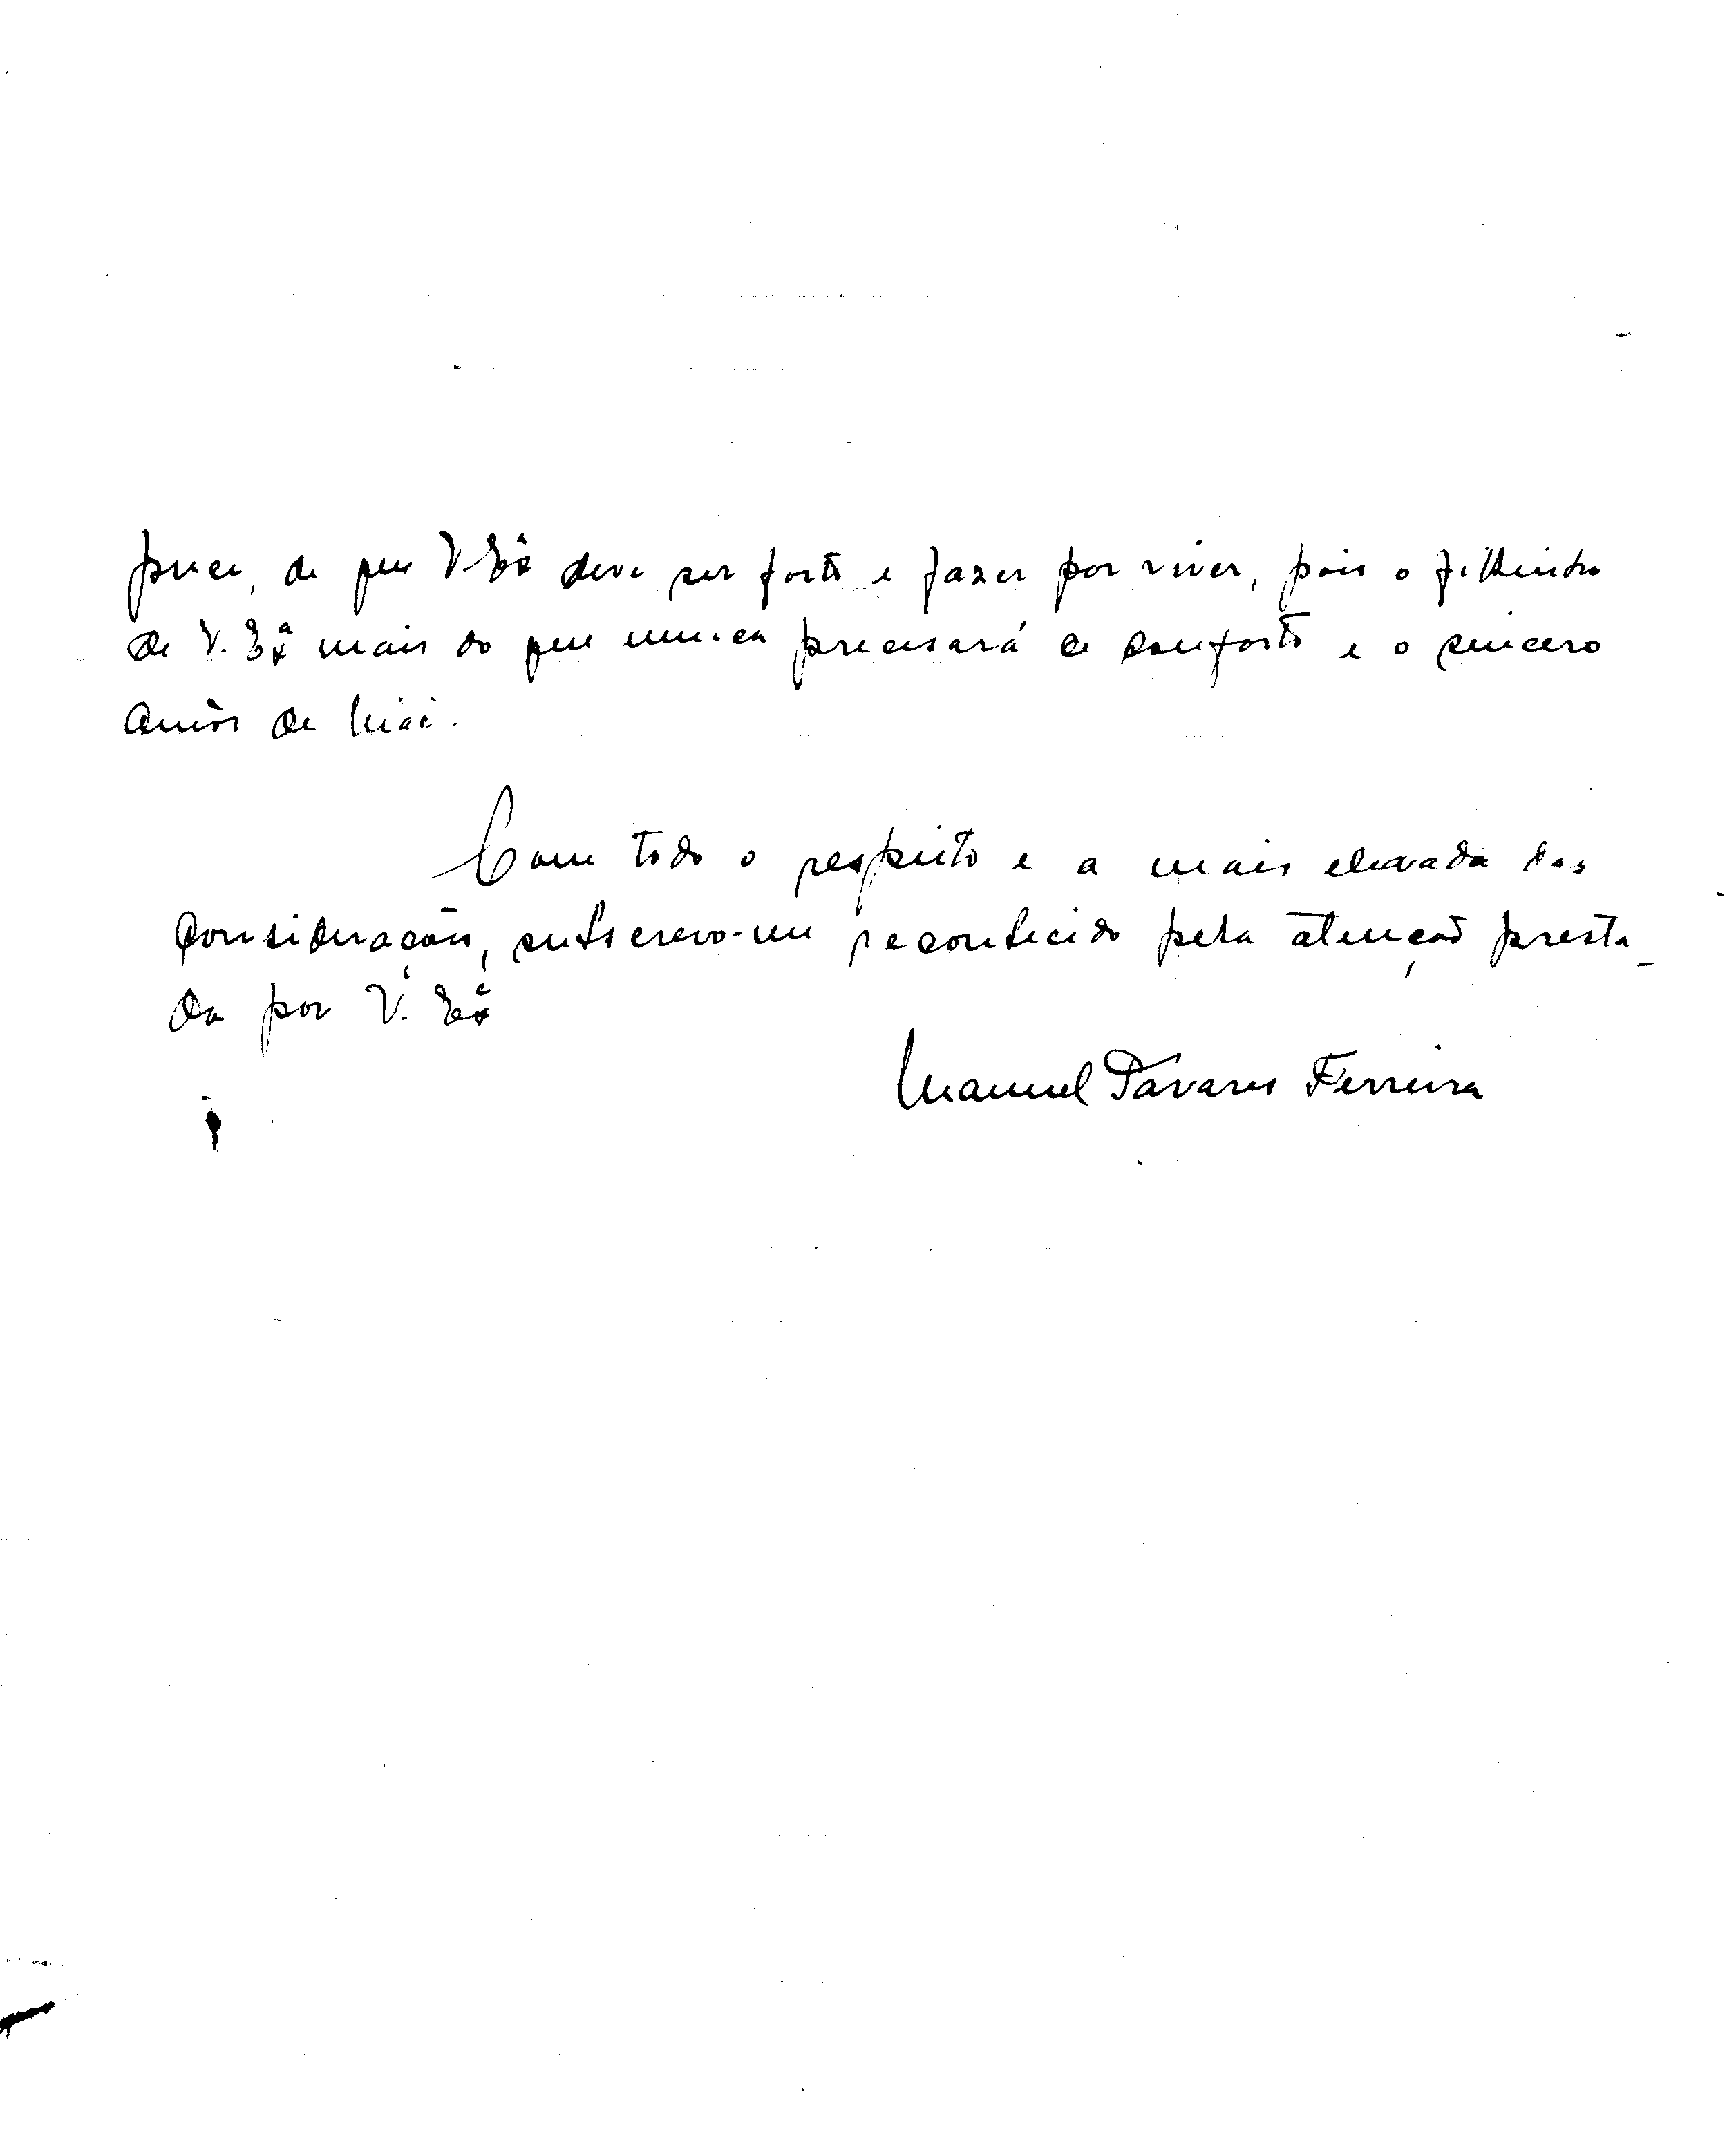 de que V. Exª deve ser forte e fazer por viver, pois o filhinho
de V. Exª mais do que nunca precisará de conforto e o sincero
amôr de Mãe.
Com todo o respeito e a mais elevada das
considerações, subscrevo-me reconhecido pela atenção presta_
da por V. Exª
Manuel Tavares Ferreira